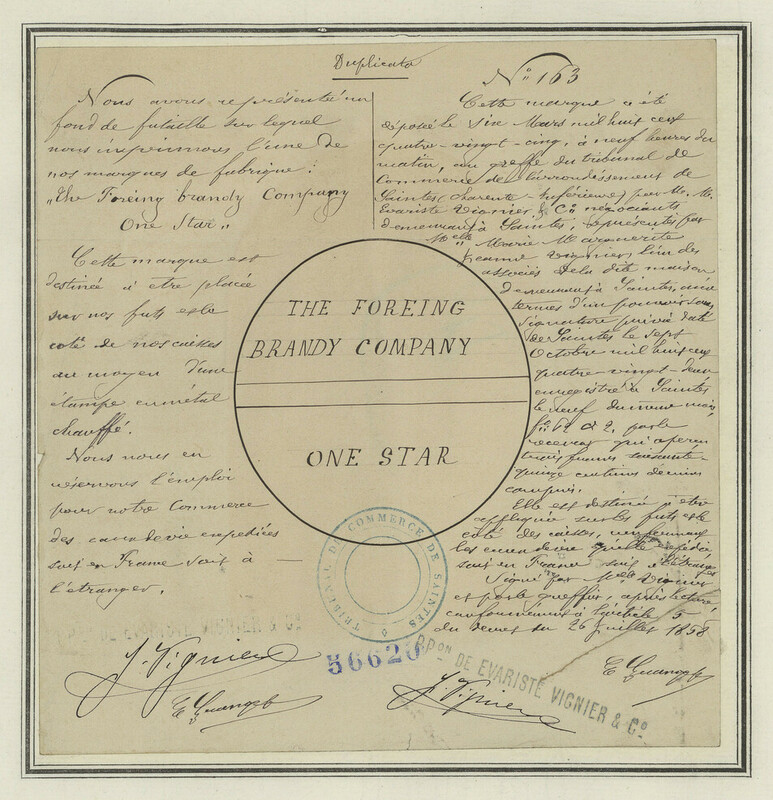 Duplicata
Nous avons représenté un
fond de futaille sur lequel
nous imprimons l'une de
nos marques de fabrique :
"The Foreing brandy Company
One Star"
Cette marque est
destinée à etre placée
sur nos futs et le
coté de nos caisses
au moyen d'une
étampe en métal
chauffé.
Nous nous en
réservons l'emploi
pour notre Commerce
des eaux de vie expediées
soit en France soit à
l'étranger.
N° 163
Cette marque a été
déposée le six Mars mil huit cent
quatre-vingt-cinq, à neuf heures du
matin, au greffe du tribunal de
Commerce de l'arrondissement de
Saintes (Charente-Inférieure) par M. M.
Evariste Vignier & Cie négociants
demeurant à Saintes, représentés par
Melle Marie Marguerite
Jeanne Vignier, l'un des
associés de la dite maison
demeurant à Saintes, aux
termes d'un pouvoir sous
signature privée daté
de Saintes le sept
Octobre mil huit cent
quatre-vingt-deux
enregistré à Saintes
le neuf du meme mois
f° 62 c 2, par le
receveur qui a perçu
trois francs soixante-
quinze centimes décimes
compris.
Elle est destinée à etre
appliquée sur les futs et le
coté des caisses, renfermant
les eaux de vie qu'elle expédie
soit en France soit à l'étranger
Signé par Melle Vignier
et par le greffier, après lecture,
conformément à l'article 5
du décret du 26 Juillet 1858
THE FOREING
BRANDY COMPANY
ONE STAR
TRIBUNAL DE COMMERCE DE SAINTES
DE EVARISTE VIGNIER & Co
J. Vignier
56620
PPon DE EVARISTE VIGNIER & Co
J. Vignier